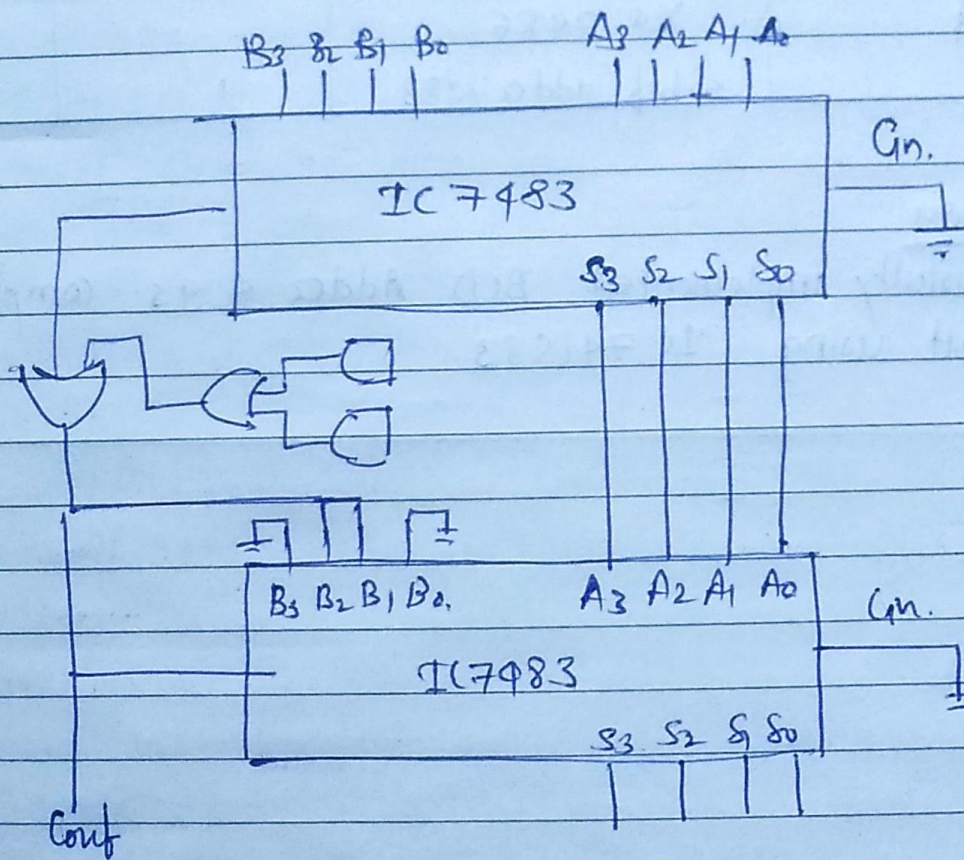 B3 B2 B1 B0 A3 A2 A1 A0
Gn.
IC 7483
S3 S2 S1 S0
B3 B2 B1 B0. A3 A2 A1 A0
Gn.
IC7483
S3 S2 S1 S0
Cout